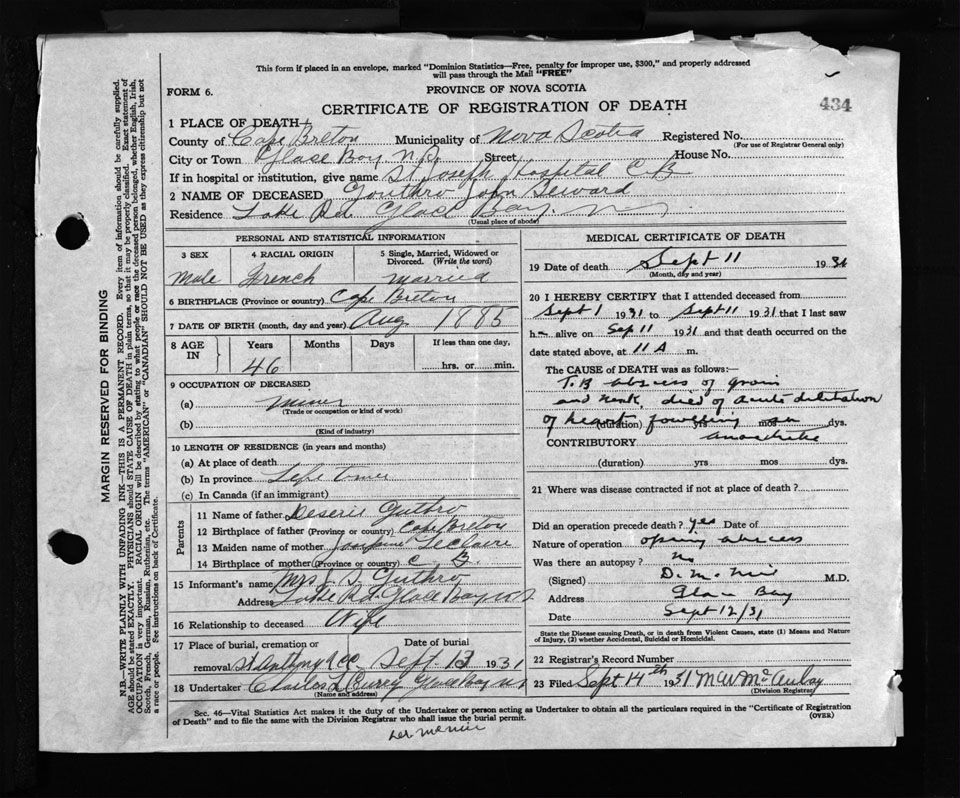 This form if placed in an envelope, marked "Dominion Statistics—Free, penalty for improper use, $300," and properly addressed
will pass through the Mail "FREE"
FORM 6.
PROVINCE OF NOVA SCOTIA
434
CERTIFICATE OF REGISTRATION OF DEATH
1 PLACE OF DEATH
County of Cape Breton Municipality of Nova Scotia Registered No.
(For use of Registrar General only)
City or Town Glase Bay N.S. Street House No.
If in hospital or institution, give name St Joseph Hospital C.B
2 NAME OF DECEASED Gouthro John Seward
Residence Lake Rd. Glace Bay.
(Usual place of abode)
PERSONAL AND STATISTICAL INFORMATION
3 SEX 4 RACIAL ORIGIN 5 Single, Married, Widowed or Divorced. (Write the word)
Male French Married
6 BIRTHPLACE (Province or country) Cape Breton
7 DATE OF BIRTH (month, day and year) Aug 1885
8 AGE IN Years Months Days If less than one day,
46 hrs. or min.
9 OCCUPATION OF DECEASED
(a) Miner
(Trade or occupation or kind of work)
(b)
(Kind of industry)
10 LENGTH OF RESIDENCE (in years and months)
(a) At place of death
(b) In province Life time
(c) In Canada (if an immigrant)
Parents
11 Name of father Deseris Guthro
12 Birthplace of father (Province or country) Cape Breton
13 Maiden name of mother Josephine LeClaire
14 Birthplace of mother (Province or country) C. B.
15 Informant's name Mrs J. S. Guthro
Address Lake Rd. Glace Bay N.S
16 Relationship to deceased Wife
17 Place of burial, cremation or removal St Anthony Date of burial Sept. 13 1931
18 Undertaker Charles L Curry Glace Bay N.S
(Name and address)
MEDICAL CERTIFICATE OF DEATH
19 Date of death Sept 11 1931
(Month, day and year)
20 I HEREBY CERTIFY that I attended deceased from
Sept 1 1931 to Sept 11 1931 that I last saw
h alive on Sep 11 1931 and that death occurred on
date stated above, at 11 A m.
The CAUSE of DEATH was as follows:
T.B abscess of groin
and neck, died of acute dilitation
of heart following an
(duration) yrs mos dys.
CONTRIBUTORY
(duration) yrs mos dys.
21 Where was disease contracted if not at place of death?
Did an operation precede death? yes Date of
Nature of operation opening abscess
Was there an autopsy? No
(Signed) M.D.
Address Glace Bay
Date Sept 12/31
State the Disease causing Death, or in death from Violent Causes, state (1) Means and Nature
of Injury, (2) whether Accidental, Suicidal or Homicidal.
22 Registrar's Record Number
23 Filed Sept 14th 1931 M W McAulay
(Division Registrar)
Sec. 46—Vital Statistics Act makes it the duty of the Undertaker or person acting as Undertaker to obtain all the particulars required in the "Certificate of Registration
of Death" and to file the same with the Division Registrar who shall issue the burial permit. (OVER)
MARGIN RESERVED FOR BINDING
N.B.—WRITE PLAINLY WITH UNFADING INK—THIS IS A PERMANENT RECORD. Every item of information should be carefully supplied.
AGE should be stated EXACTLY. PHYSICIANS should STATE CAUSE OF DEATH in plain terms, so that it may be properly classified. Exact statement of
OCCUPATION is very important. RACIAL ORIGIN will be described by stating to what people or race the deceased person belonged, whether English, Irish,
Scotch, French, German, Russian, Ruthenian, etc. The terms "AMERICAN" or "CANADIAN" SHOULD NOT BE USED as they express citizenship but not
a race or people. See instructions on back of Certificate.